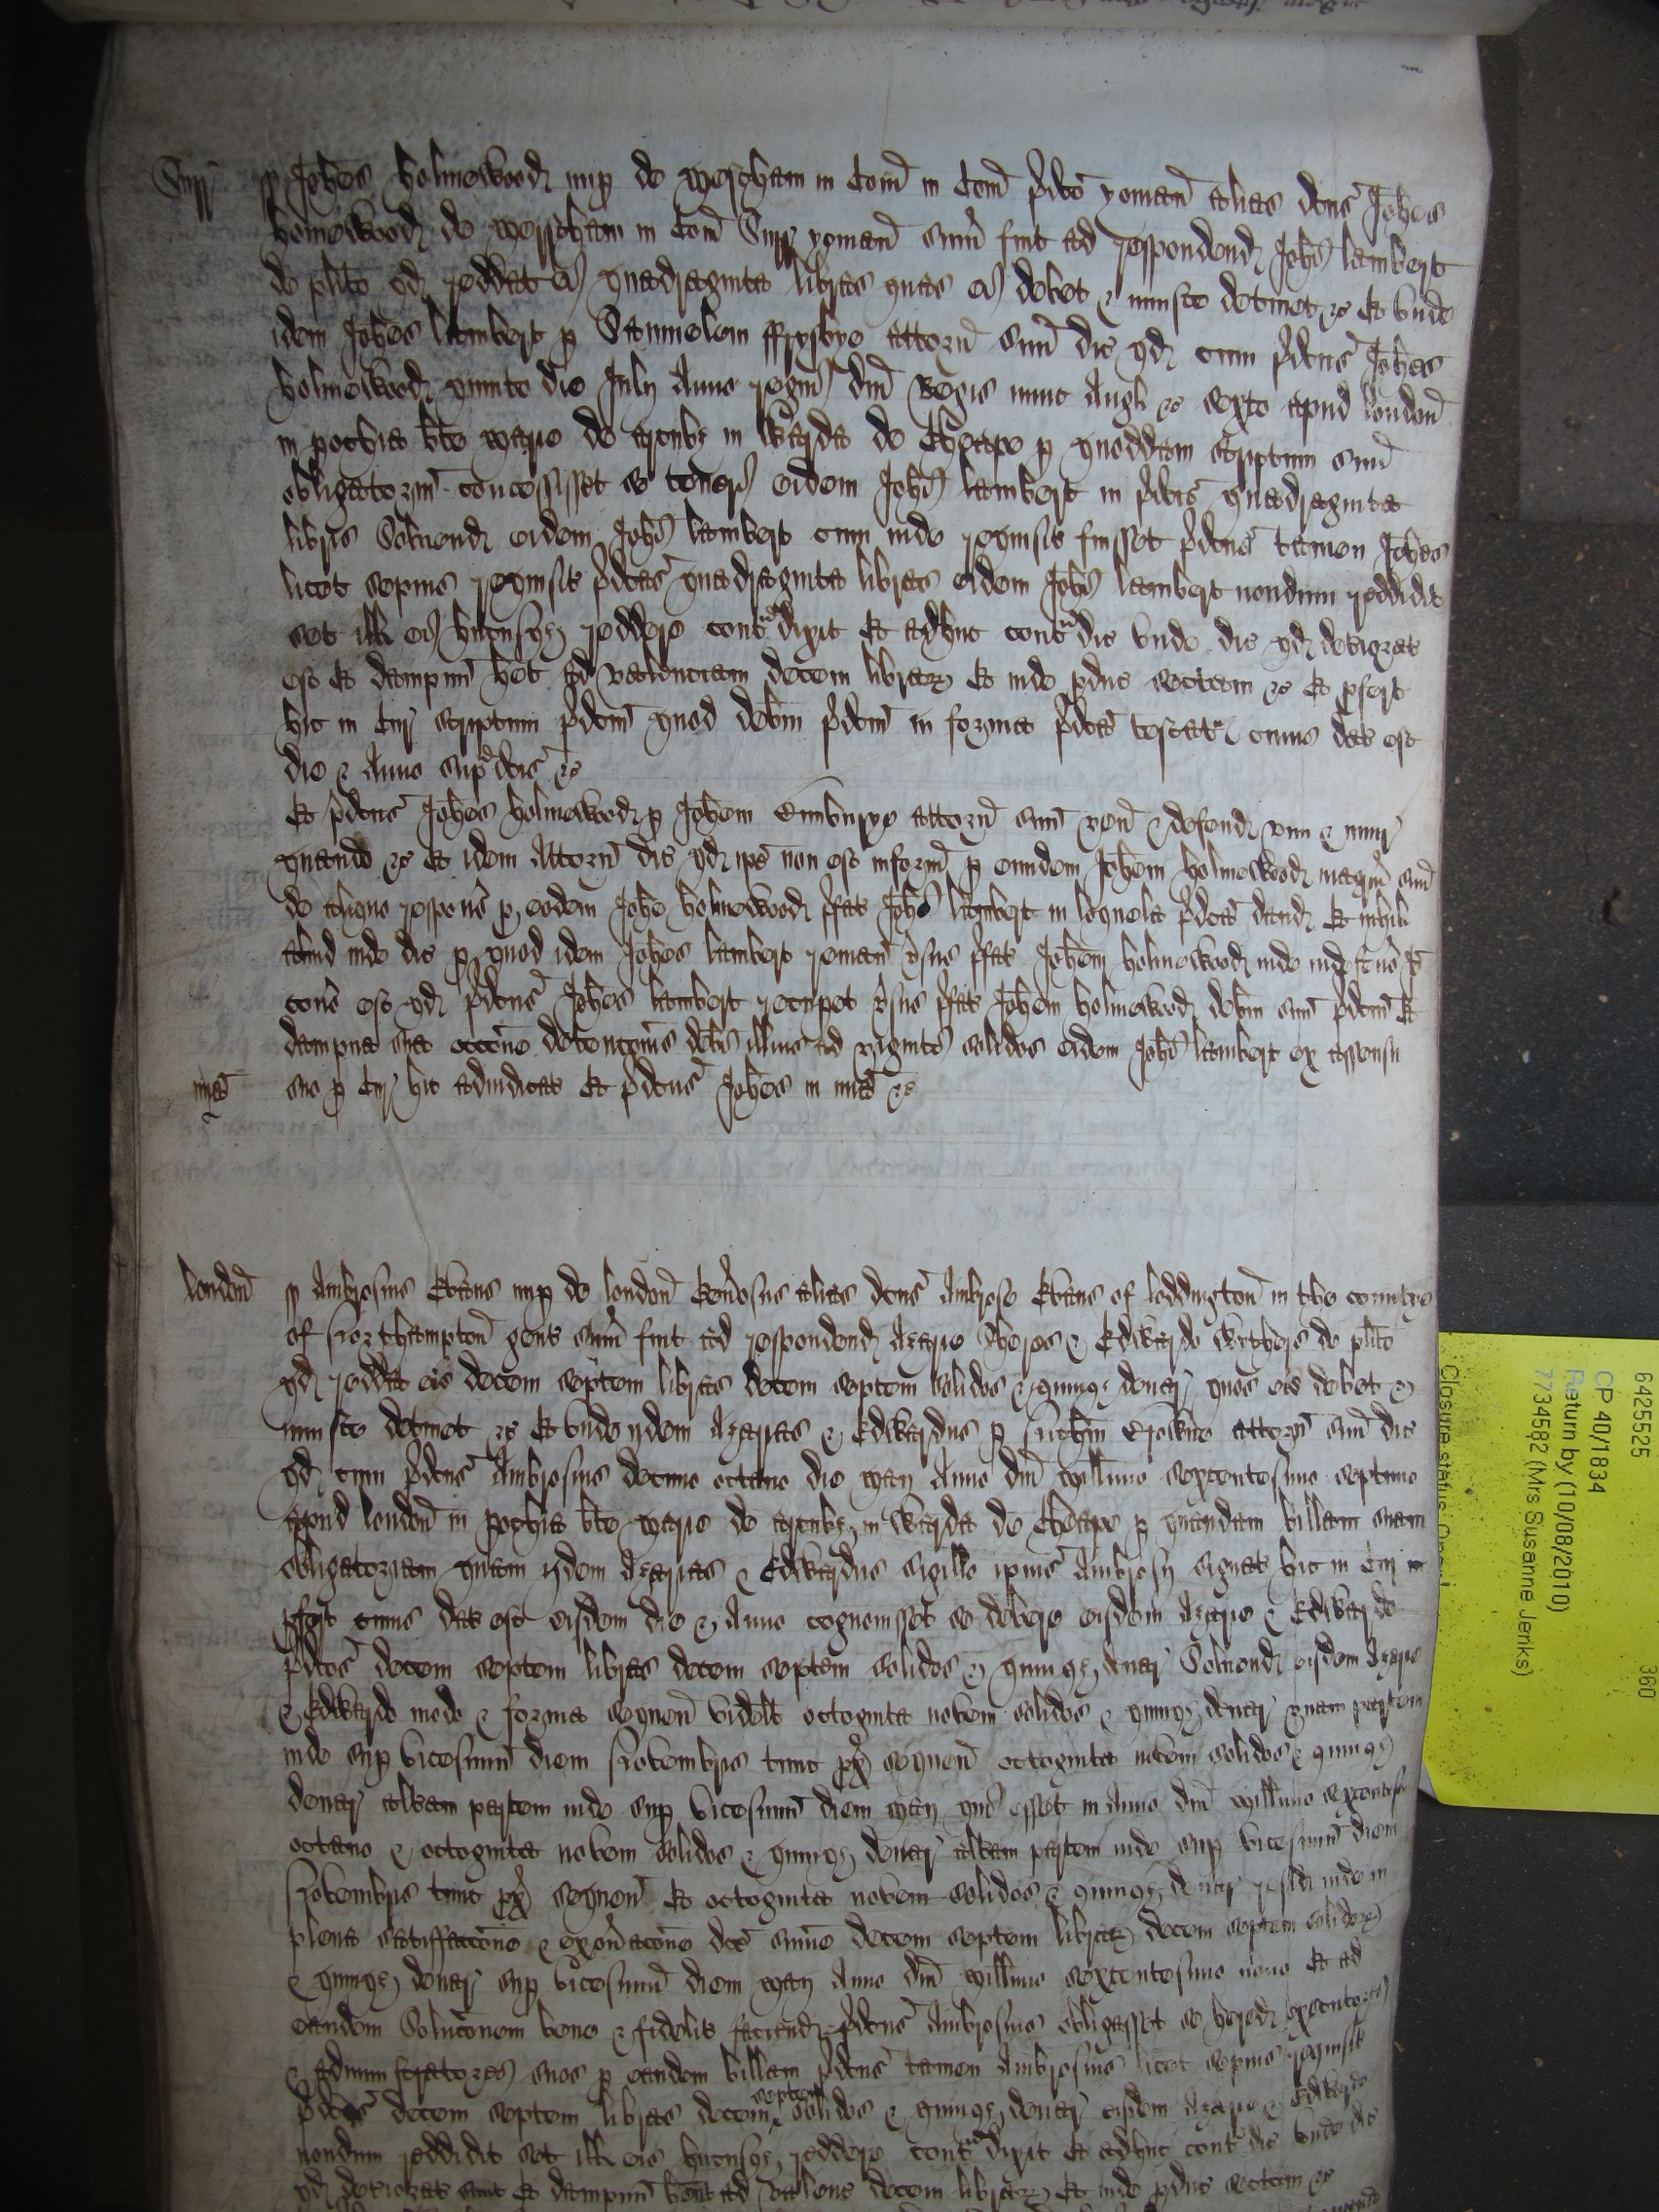 Surr ss Johes Holmewood nup de Mersham in Com in Com pdco yoman alias dcus Johes
Homewood de Merstham in Com Surr yoman sum fuit ad respondend Johi Lambert
de plito qd reddat ei quadraginta libras quas ei debet & iniuste detinet &c Et unde
idem Johes Lambert p Samuelem Frysbye attorn suu dic qd cum pdcus Johes
Holmewood quinto die Julij Anno regni dni Regis nunc Angl &c sexto apud London
in pochia bte Marie de Arcubz in Warda de Cheape p quoddam scriptum suu
obligatorium concessisset se teneri eidem Johi Lambert in pdcis quadraginta
libris Solvend eidem Johi Lambert cum inde requisit fuisset pdcus tamen Johes
licet sepius requisit pdcas quadraginta libras eidem Johi Lambert nondum reddidit
set ill ei hucusqz reddere contradixit Et adhuc contradic unde dic qd deteriorat
est Et dampnu het ad valenciam decem librar Et inde pduc sectam &c Et pfert
hic in Cur scriptum pdcm quod debm pdcm in forma pdca testatr cuius dat est
die & Anno supradcis &c
Et pdcus Johes Holmewood p Johem Embury attorn suu ven & defend vim & iniur
quando &c Et idem Attorn dic qd ipe non est informat p eundem Johem Holmewood magrm suu
de aliquo respons p eodem Johe Holmewood pfat Johi Lambert in loquela pdca dand Et nichil
aliud inde dic p quod idem Johes Lambert reman vsus pfat Johem Holmewood inde indefens Io
cons est qd pdcus Johes Lambert recupet vsus pfat Johem Holmewood debm suu pdcm Et
dampna sua occone detencois debi illius ad viginti solidos eidem Johi Lambert ex assensu
mia suo p Cur hic adiudicat Et pdcus Johes in mia &c
London ss Ambrosius Evans nup de London Generosus alias dcus Ambrose Evans of Loddington in the countye
of Northampton gent sum fuit ad respondend Azarie & Edwardo Wethers de plito
qd reddat eis decem septem libras decem septem solidos & quinqz denar quos eis debet &
iniuste detinet &c Et unde ijdem Azarias & Edwardus p attorn suu dic
qd cum pdcus Ambrosius decimo octavo die Maij Anno dni millimo sexcentesimo septimo
apud London in pochia bte Marie de Arcubz in Warda de Cheape p quandam billam suam
obligatoriam quam ijdem Azarias & Edwardus sigillo ipius Ambrosij signat hic in Cur
pfert cuius dat est eisdem die & Anno cognovisset se debere eisdem Azarie & Edwardo
pdcos decem septem libras decem septem solidos & quinqz denar Solvend eisdem Azarie
& Edwardo modo & forma sequen videlt octoginta novem solidos & quinqz denar quam partem
inde sup vicesimu diem Novembris tunc px sequen octoginta novem solidos & quinqz
denar aliam partem inde sup vicesimu diem Maij qui esset in Anno dni millimo sexcentesimo
octavo & octoginta novem solidos & quinqz denar aliam partem inde sup vicesimu diem
Novembris tunc px sequen Et octoginta novem solidos & quinqz denar resid inde in
plena satisfaccone & exoneracone dce sume decem septem librar decem septem solidorz
& quinqz denar sup vicesimu diem Maij Anno dni millimo sexcentesimo nono Et ad
eandem Solucionem bene & fidelit faciend pdcus Ambrosius obligasset se hered executores
& administratores suos p eandem billam pdcus tamen Ambrosius licet sepius requisit
pdcos decem septem libras decem septem solidos & quinqz denar eisdem Azarie & Edwardo
nondum reddidit set ill eis hucusqz reddere contradixit Et adhuc contradic unde dic
qd deteriorat sunt Et dampnu hent ad valenc decem librarz Et inde pduc sectam &c
6425525 360
CP 40/1834
Return by (10/08/2010)
7734582 (Mrs Susanne Jenks)
Closure status: Open